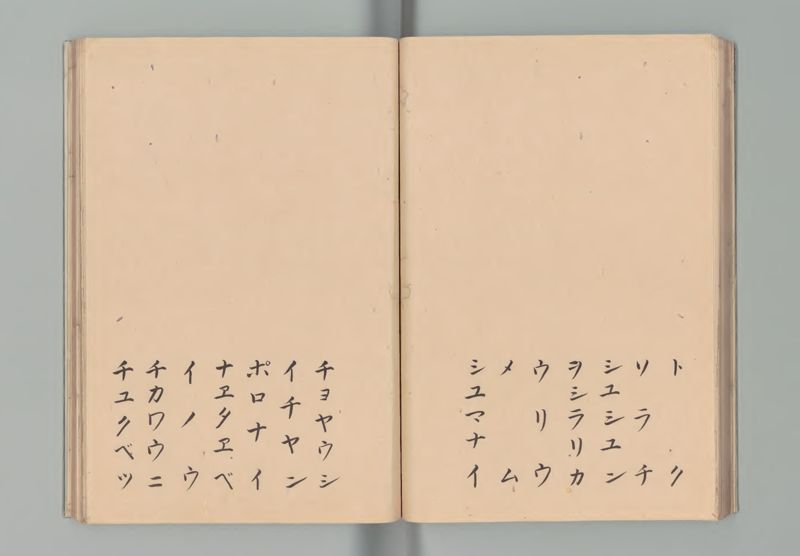 トク
ソラチ
シユシユン
ヲシラリカ
ウリウ
メム
シユマナイ
チヨヤウシ
イチヤン
ポロナイ
ナヱタヱベ
イノウ
チカワウニ
チユクベツ